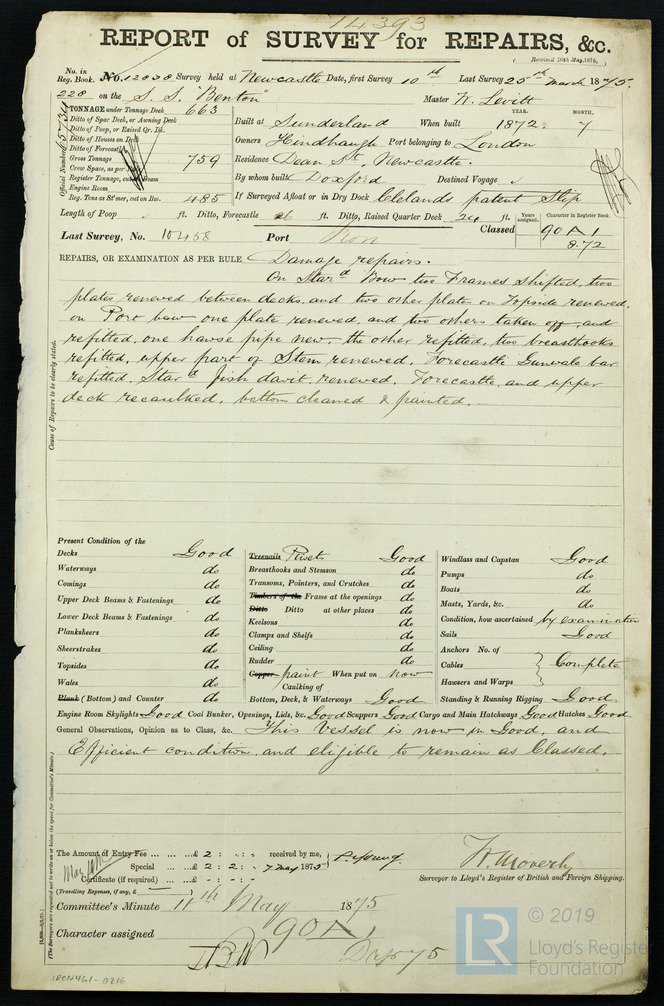 14393
REPORT of SURVEY for REPAIRS, &c.
(Received 10th May, 1875,)
No. in Reg. Book. No. 12038 Survey held at Newcastle Date, first Survey 10th Last Survey 25th March 1875.
228 on the S. S. "Benton" Master W. Levitt
TONNAGE under Tonnage Deck 663
Ditto of Spar Deck, or Awning Deck
Ditto of Poop, or Raised Qr. Dk.
Ditto of Houses on Deck
Ditto of Forecastle
Gross Tonnage 759
Crew Space, as per
Register Tonnage, cut on Beam
Engine Room
Reg. Tons as St'mer, cut on Bm. 485
Official Number 65734
YEAR. MONTH.
Built at Sunderland When built 1872. 7
Owners Hindhaugh Port belonging to London
Residence Dean St., Newcastle.
By whom built Doxford Destined Voyage
If Surveyed Afloat or in Dry Dock Clelands patent Slip
Length of Poop ft. Ditto, Forecastle 26 ft. Ditto, Raised Quarter Deck 24 ft. Years assigned. Character in Register Book.
Last Survey, No. 10458 Port Iron Classed 90 A 1
8.72
REPAIRS, OR EXAMINATION AS PER RULE Damage repairs.
On Stard Bow two Frames shifted, two
plates renewed between decks, and two other plates on Topside renewed,
on Port bow one plate renewed, and two others taken off and
refitted, one hawse pipe new, the other refitted, two breasthooks
refitted, upper part of Stem renewed, Forecastle Gunwale bar
refitted, Stard fish davit renewed, Forecastle and upper
deck recaulked, bottom cleaned & painted.
Cause of Repairs to be clearly stated.
Present Condition of the
Decks Good
Waterways do
Comings do
Upper Deck Beams & Fastenings do
Lower Deck Beams & Fastenings do
Planksheers do
Sheerstrakes do
Topsides do
Wales do
Plank (Bottom) and Counter do
Treenails Rivets Good
Breasthooks and Stemson do
Transoms, Pointers, and Crutches do
Timbers of the Frame at the openings do
Ditto Ditto at other places do
Keelsons do
Clamps and Shelfs do
Ceiling do
Rudder do
Copper paint When put on now
Caulking of
Bottom, Deck, & Waterways Good
Windlass and Capstan Good
Pumps do
Boats do
Masts, Yards, &c. do
Condition, how ascertained by examination
Sails Good
Anchors No. of
Cables Complete
Hawsers and Warps
Standing & Running Rigging Good
Engine Room Skylights Good Coal Bunker, Openings, Lids, &c. Good Scuppers Good Cargo and Main Hatchways Good Hatches Good
General Observations, Opinion as to Class, &c. This Vessel is now in Good, and
Efficient condition and eligible to remain as Classed.
(The Surveyors are requested not to write on or below the space for Committee's Minute.)
The Amount of Entry Fee ... £ 2 : - : - received by me,
Special ... £ 2 : 2 : - 7 May 1875
Certificate (if required) ... £ - : - : -
(Travelling Expenses, if any, £ )
W. Moverly
Surveyor to Lloyd's Register of British and Foreign Shipping.
Committee's Minute 11th May 1875
Character assigned 90 A 1
IRON461-0216
LR © 2019
Lloyd's Register
Foundation